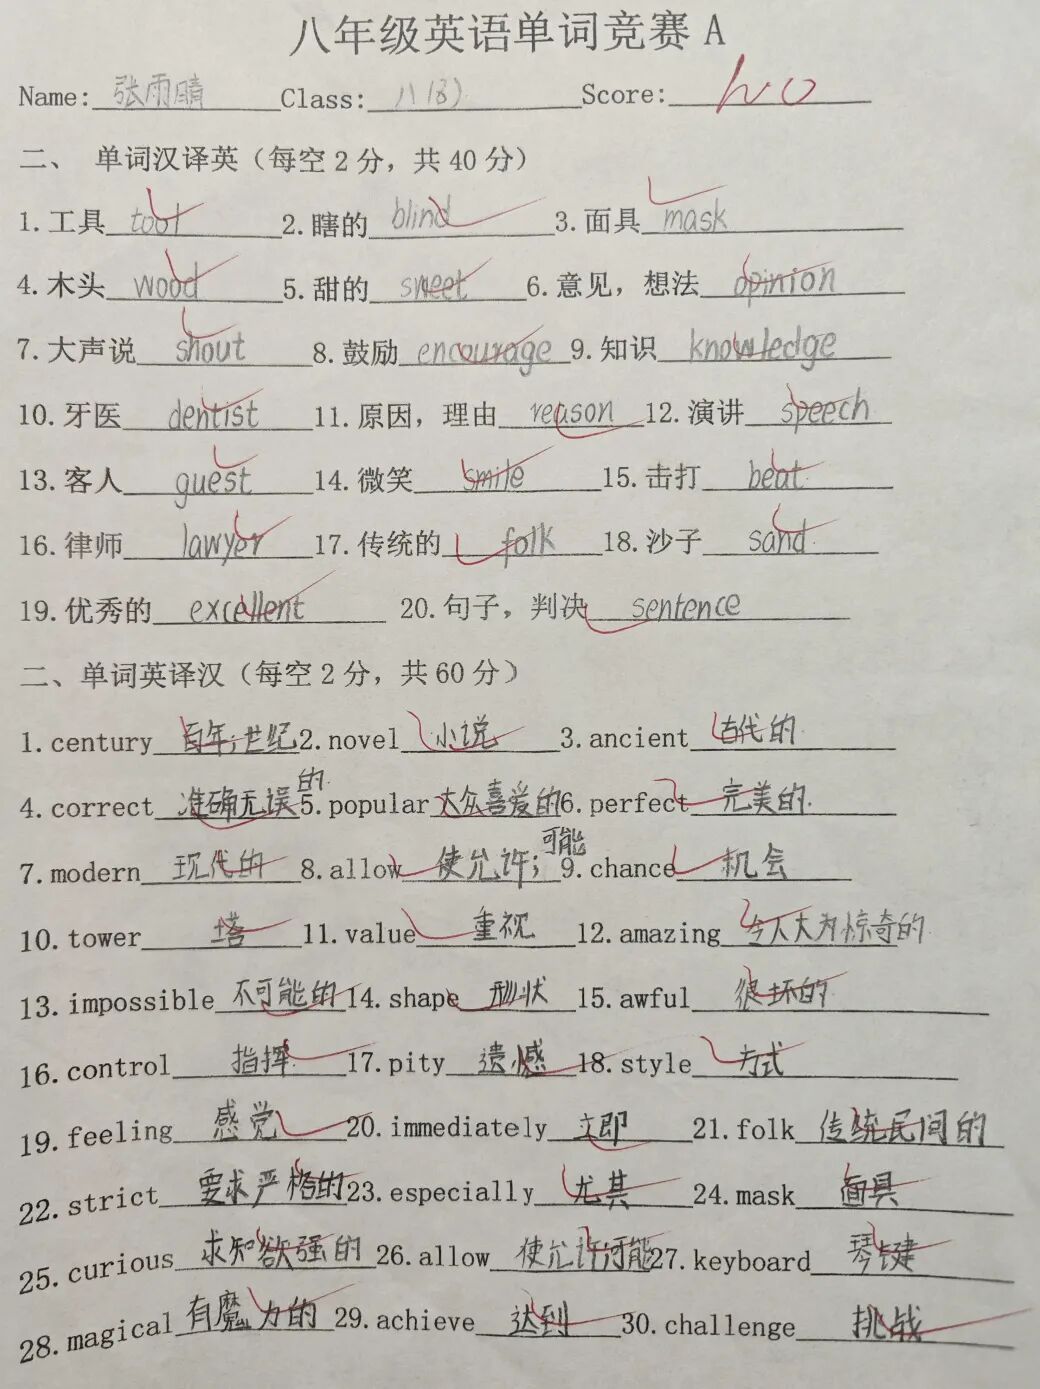 八年级英语单词竞赛 A
Name: 张雨晴 Class: 八(3) Score:
二、 单词汉译英（每空 2 分，共 40 分）
1.工具 tool 2.瞎的 blind 3.面具 mask
4.木头 wood 5.甜的 sweet 6.意见，想法 opinion
7.大声说 shout 8.鼓励 encourage 9.知识 knowledge
10.牙医 dentist 11.原因，理由 reason 12.演讲 speech
13.客人 guest 14.微笑 smile 15.击打 beat
16.律师 lawyer 17.传统的 folk 18.沙子 sand
19.优秀的 excellent 20.句子，判决 sentence
二、单词英译汉（每空 2 分，共 60 分）
1.century 百年;世纪 2.novel 小说 3.ancient 古代的
4.correct 准确无误的 5.popular 大众喜爱的 6.perfect 完美的
7.modern 现代的 8.allow 使允许;可能 9.chance 机会
10.tower 塔 11.value 重视 12.amazing 令人大为惊奇的
13.impossible 不可能的 14.shape 形状 15.awful 很坏的
16.control 指挥 17.pity 遗憾 18.style 方式
19.feeling 感觉 20.immediately 立即 21.folk 传统民间的
22.strict 要求严格的 23.especially 尤其 24.mask 面具
25.curious 求知欲强的 26.allow 使允许可能 27.keyboard 琴键
28.magical 有魔力的 29.achieve 达到 30.challenge 挑战